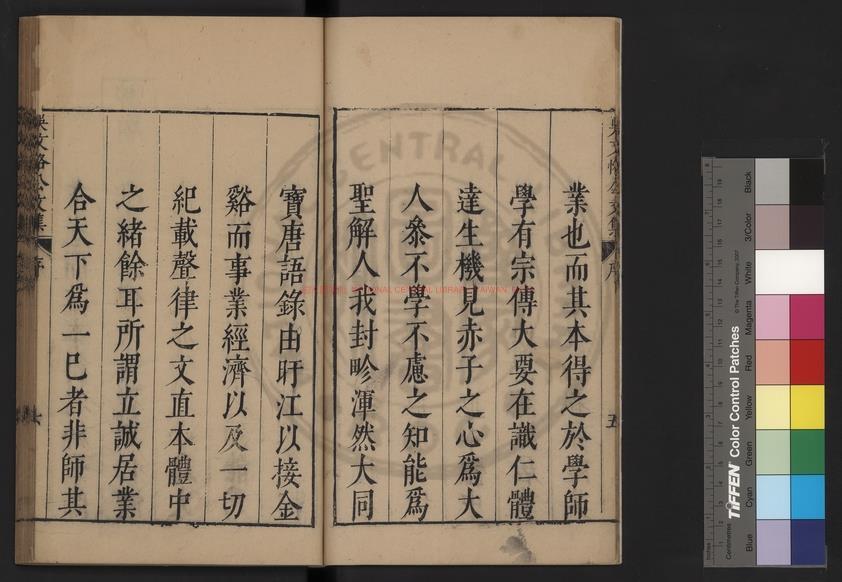 業也而其本得之於學師
學有宗傳大要在識仁體
達生機見赤子之心爲大
人叅不學不慮之知能爲
聖解人我封畛渾然大同
五
寶唐語錄由旴江以接金
谿而事業經濟以及一切
紀載聲律之文直本體中
之緒餘耳所謂立誠居業
合天下爲一巳者非師其
序
NATIONAL CENTRAL LIBRARY
TAIWAN
TIFFEN Color Control Patches
© The Tiffen Company, 2007
Centimetres
Blue
Cyan
Green
Yellow
Red
Magenta
White
3/Color
Black